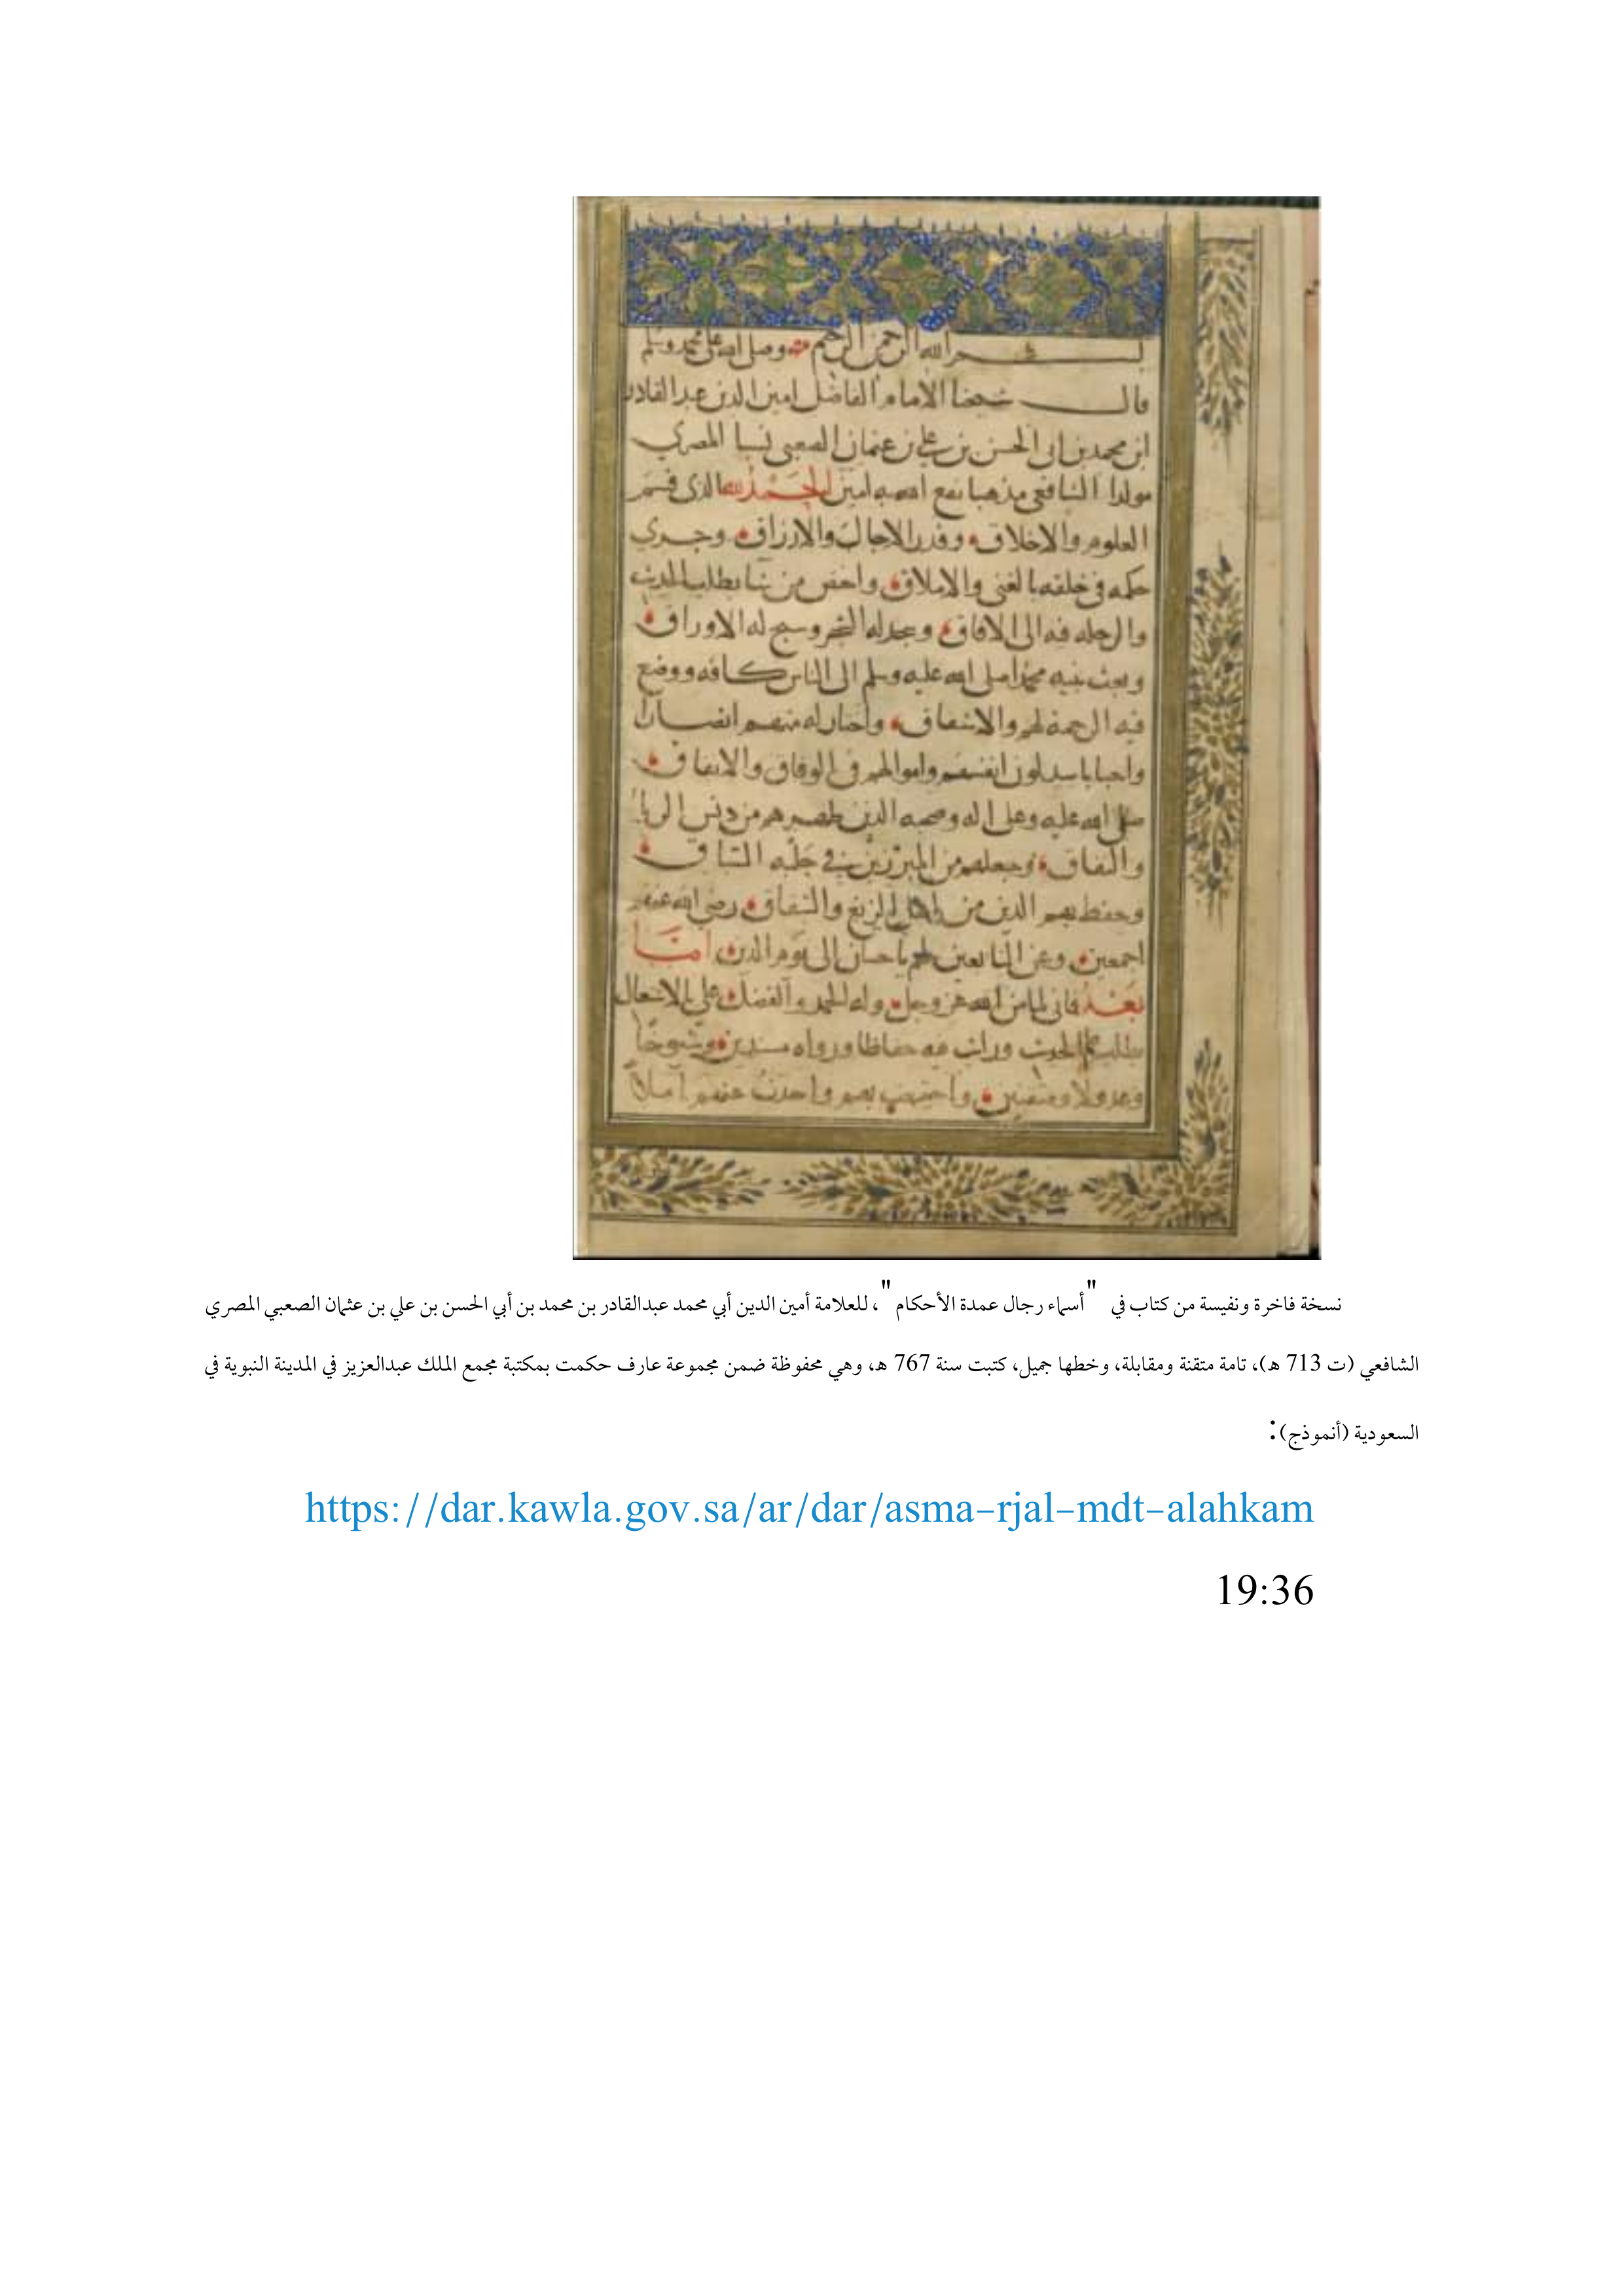 بسم الله الرحمن الرحيم وصلى الله على محمد وسلم
قال شيخنا الامام الفاضل امين الدين عبد القادر
ابن محمد بن ابى الحسن بن على بن عثمان الصعبى نسبا المصري
مولدا الشافعي مذهبا نفع الله به امين الحمد لله الذى قسم
العلوم والاخلاق وقدر الاجال والارزاق وجرى
حكمه فى خلقه بالغنى والاملاق واختص من شا بطلب الحديث
والرحله فيه الى الافاق وسجد له الشجر وسبح له الاوراق
وبعث نبيه محمدا صلى الله عليه وسلم الى الناس كافه ووضع
فيه الرحمة لهم والاشفاق واختار له منهم انصارا
واحبابا يبدلون انفسهم واموالهم فى الوفاق والانفاق
صلى الله عليه وعلى اله وصحبه الذين طهرهم من دنس الريا
والنفاق وجعلهم من المبرزين في حلبه السباق
وحفظ بهم الدين من اهل الزيغ والشقاق رضى الله عنهم
اجمعين وعن التابعين لهم باحسان الى يوم الدين اما
بعد فانى لما من الله عز وجل وله الحمد والفضل على بالاشتغال
بطلب الحديث ورايت فيه حفاظا ورواه مسندين وشيوخا
وعدولا ومتقنين واجتمعت بهم واخذت عنهم
نسخة فاخرة ونفيسة من كتاب في "أسماء رجال عمدة الأحكام"، للعلامة أمين الدين أبي محمد عبدالقادر بن محمد بن أبي الحسن بن علي بن عثمان الصعبي المصري
الشافعي (ت 713 هـ)، تامة متقنة ومقابلة، وخطها جميل، كتبت سنة 767 هـ، وهي محفوظة ضمن مجموعة عارف حكمت بمكتبة مجمع الملك عبدالعزيز في المدينة النبوية في
السعودية (أنموذج):
https://dar.kawla.gov.sa/ar/dar/asma-rjal-mdt-alahkam
19:36